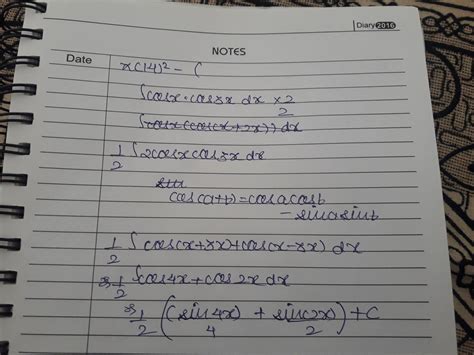 Diary2016
NOTES
Date
π(14)² - (
∫cosx·cos3x dx × 2/2
∫cosx(cos(x+2x))dx
1/2 ∫2cosxcos3x dx
cos(a+b)=cosacosb
-sinasinb
1/2 ∫cos(x+3x)+cos(x-3x) dx
⇒ 1/2 ∫cos4x+cos2x dx
⇒ 1/2 (sin(4x)/4 + sin(2x)/2) + C